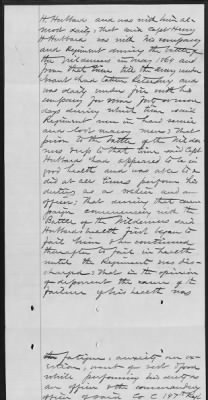 H. Hubbard and was with him al-
most daily; that said Capt Henry
H Hubbard was with his company
and Regiment during the battle of
the Wilderness in May 1864 and
from that time till the Army
was daily under fire with his
company for some
days during which time said
Regiment was in hard service
and lost many men; that
prior to the battle of the Wilder-
ness and up to that time said Capt
Hubbard had appeared to be in
good health and was able to &
did at all times perform his
duties as a soldier and an
officer; that during that cam-
paign commencing with the
Battle of the Wilderness said
Hubbard's health first began to
fail him & he continued
thereafter to fail in health
until the Regiment was dis-
charged; that in the opinion
of deponent the cause of the
failure of his health was
the fatigue, anxiety, over ex-
ertion, want of rest &
while performing his duty as
an officer & the commanding
officer of said Co C 147th Regt